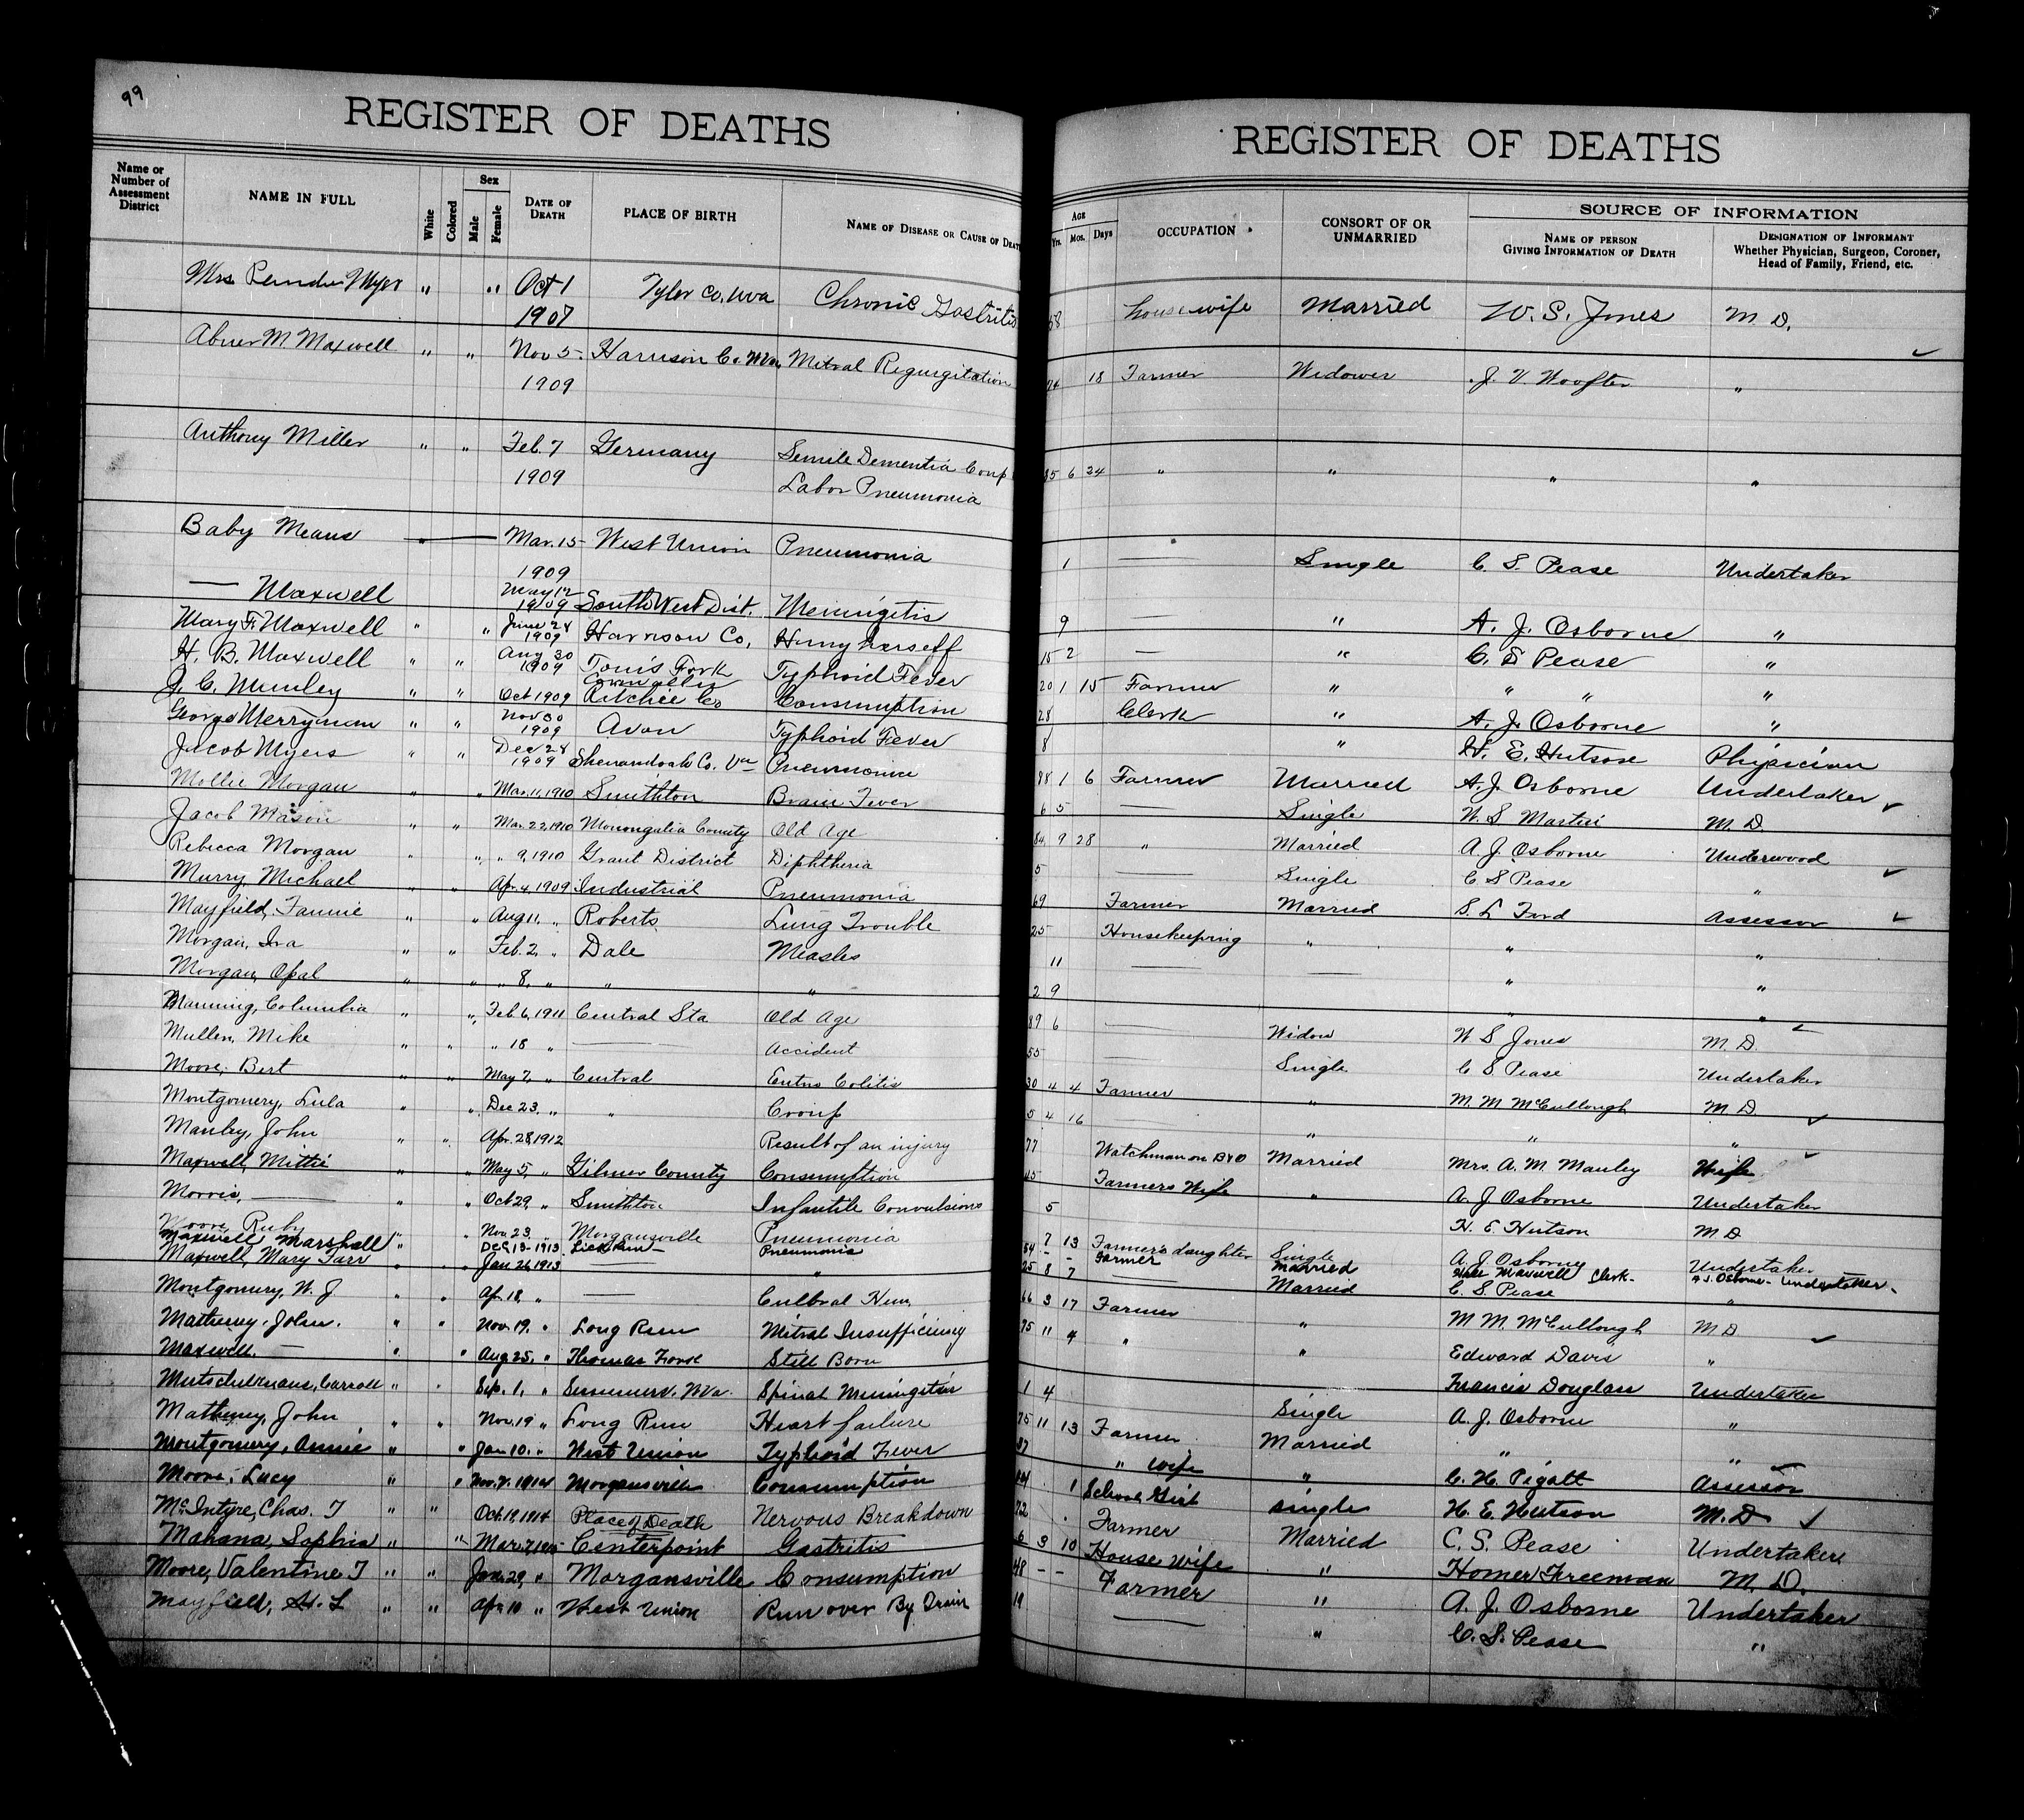 99
REGISTER OF DEATHS
Name or Number of Assessment District
NAME IN FULL
White
Colored
Sex
Male
Female
DATE OF DEATH
PLACE OF BIRTH
NAME OF DISEASE OR CAUSE OF DEATH
Mrs Myer " " Oct 1 1907 Tyler Co, Wva Chronic Gastritis
Abner M. Maxwell " " Nov 5- 1909 Harrison Co. WVa, Mitral Regurgitation
Anthony Miller " " Feb. 7 1909 Germany Senile Dementia Comp
Labor Pneumonia
Baby Means " — Mar. 15- 1909 West Union Pneumonia
— Maxwell May 12 1909 South West Dist. Meningetis
Mary F. Maxwell " " June 24 1909 Harrison Co, Hung herself
H. B. Maxwell " " Aug 30 1909 Toms Fork Typhoid Fever
J. C. Munley " " Oct 1909 Cornwallis Ritchie Co Consumption
George Merryman " " Nov 30 1909 Avon Typhoid Fever
Jacob Myers " " Dec 24 1909 Shenandoah Co. Va Pneumonia
Mollie Morgan " " Mar. 11, 1910 Smithton Brain Fever
Jacob Mason " " Mar. 22, 1910 Monongalia County Old Age
Rebecca Morgan " " " 9, 1910 Grant District Diphtheria
Murry, Michael " " Apr. 4, 1909 Industrial Pneumonia
Mayfield, Fannie " " Aug 11, " Roberts Lung Trouble
Morgan, Ira " " Feb. 2, " Dale Measles
Morgan, Opal " " 8, " " "
Manning, Columbia " " Feb. 6, 1911 Central Sta Old Age
Mullen, Mike " " " 18 " — Accident
Moore, Bert " " May 7, " Central Entro Colitis
Montgomery, Lula " " Dec 23, " " Croup
Manley, John " " Apr. 28, 1912 Result of an injury
Maxwell, Mittie " " May 5, " Gilmer County Consumption
Morris, — " " Oct 29, " Smithton Infantile Convulsions
Moore, Ruby " Nov 23, " Morgansville Pneumonia
Maxwell Marshall " Dec, 13- 1913 Lick Run — Pneumonia
Maxwell, Mary Tarr " " Jan 26, 1913 — "
Montgomery, W. J " " Apr. 18, " — Culbral Hem,
Matheny, John. " " Nov. 19, " Long Run Mitral Insufficiency
Maxwell. — " " Aug 25, " Thomas Fork Still Born
Carroll " " Sep. 1, " Summers. W.Va. Spinal Meningitis
Matheny, John " " Nov. 19 " Long Run Heart failure
Montgomery, Annie " " Jan 10. " West Union Typhoid Fever
Moore, Lucy " " Nov. 7. 1914 Morgansville Consumption
McIntyre, Chas. T " " Oct. 19, 1914 Place of Death Nervous Breakdown
Mahana, Sophria " " Mar. 7, 1915 Centerpoint Gastritis
Moore, Valentine T " " Jan. 29, " Morgansville Consumption
Mayfield, H. L " " Apr 10 " West Union Run over By Drain
REGISTER OF DEATHS
Age
Yrs. Mos. Days
OCCUPATION
CONSORT OF OR UNMARRIED
SOURCE OF INFORMATION
NAME OF PERSON GIVING INFORMATION OF DEATH
DESIGNATION OF INFORMANT
Whether Physician, Surgeon, Coroner, Head of Family, Friend, etc.
58 housewife Married W. S. Jones M. D.
74 18 Farmer Widower J. V. Woofter "
85 6 24 " " " "
1 — Single C. S. Pease Undertaker
9 " A. J. Osborne "
15 2 — " C. S Pease "
20 1 15 Farmer " " " "
28 Clerk " A. J. Osborne "
8 " H. E. Hutson Physician
88 1 6 Farmer Married A. J. Osborne Undertaker
6 5 — Single W. S Martin M. D.
84 9 28 " Married A. J. Osborne Underwood
5 — Single C S Pease "
69 Farmer Married S. L Ford Assessor
25 Housekeeping " " "
11 — — " "
2 9 " "
89 6 — Widow W S Jones M. D.
55 — Single C S Pease Undertaker
30 4 4 Farmer " M. M McCullough M D
5 4 16 " " "
77 Watchman on B&O Married Mrs. A. M. Manley Wife
45 Farmers Wife " A. J Osborne Undertaker
5 H. E. Hutson M D
7 13 Farmer's daughter Single A. J Osborne Undertaker
84 - - Farmer Married Maxwell Clerk- A. J. Osborne- Undertaker-
25 8 7 — Married C. S Pease "
66 3 17 Farmer " M M. McCullough M D
75 11 4 " " Edward Davis "
Francis Douglass Undertaker
1 4 Single A. J. Osborne "
75 11 13 Farmer Married " "
37 " Wife " C. H. Pigott Assessor
1 School Girl single H. E. Hutson M. D
72 Farmer Married C. S. Pease Undertaker
6 3 10 House Wife " Homer Freeman M. D.
48 - - Farmer " A. J. Osborne Undertaker
19 — " C. S. Pease "